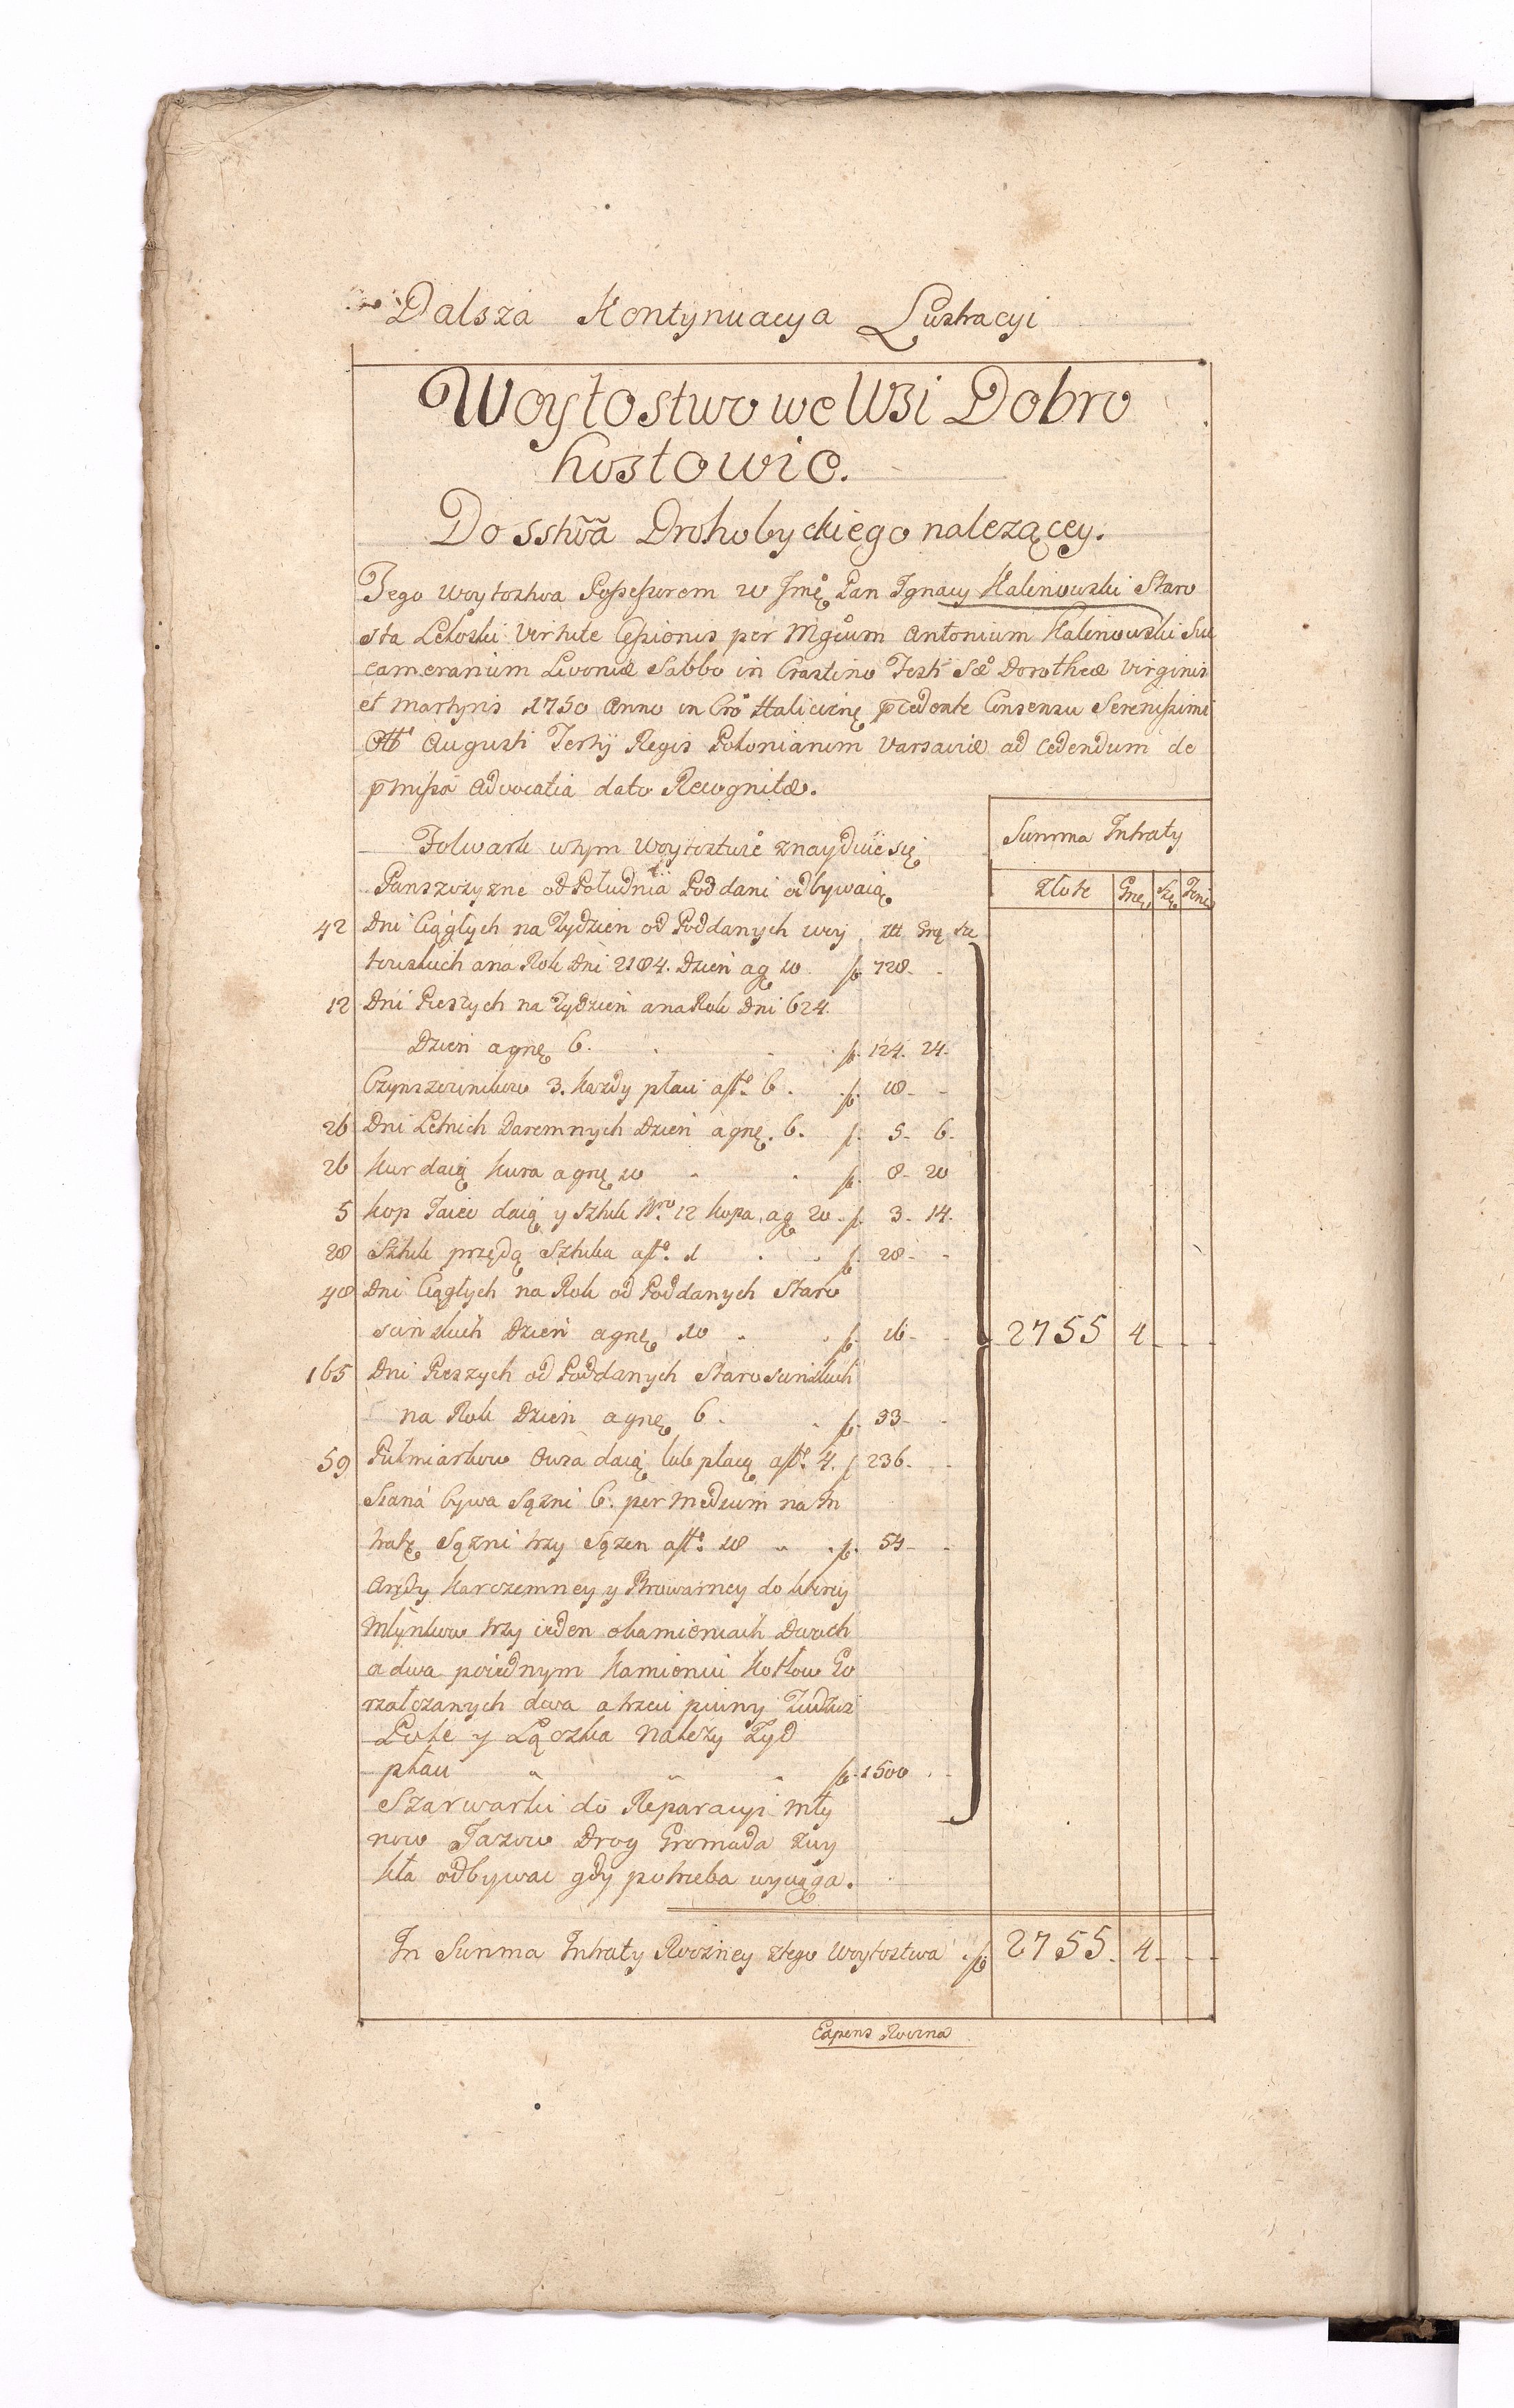 Dalsza Kontynuacya Lustracyi
Woytostwo we Wsi Dobro
hostowie.
Do sstwa Drohobyckiego nalezącey.
Tego Woytostwa Possessorem w Jmę Pan Ignacy Kalinowski Staro
sta virtute Cessionis per Mgcum Antonium Kalinowski Suc
camerarium Livoniæ Sabbo in Crastino Festi Sæ Dorotheæ Virginis
et Martyris 1750 Anno in Cro Haliciem pcedente Consensu Serenissimi
Augusti Tertij Regis Poloniarum Varsaviæ ad cedendum de
pmissa Advocatia dato Recognitæ.
Summa Intraty
Folwark wtym Woytostwie znayduie się
Panszczyzne od Południa Poddani odbywaią
Złote Grę Szę
42 Dni Ciągłych na Tydzien od Poddanych woy Złł Grę Sze
towskich a na Rok Dni 2184. Dzień a gę 10 f. 728 - -
12 Dni Pieszych na Tydzien a na Rok Dni 624.
Dzien a gnę 6. f. 124. 24.
Czynszownikow 3. kazdy płaci a fło 6. f. 18 - -
26 Dni Letnich Daremnych Dzien a gnę. 6. f. 5 - 6 -
26 kur daią kura a gnę 10 f. 8 - 20
5 kop Jaiec daią y sztuk Nro 12 kopa, a gę 20 f. 3 - 14.
28 Sztuk przędą Sztuka a fło 1 f. 28 - -
48 Dni Ciągłych na Rok od Poddanych Staro
scinskich Dzien a gnę 10 f. 16 - - 2755 4 - - -
165 Dni Pieszych od Poddanych Staroscinskich
na Rok Dzien a gnę 6. f. 33 - -
59 Pułmiarkow Owsa daią lub płacą a fło 4. f. 236 - -
Siana bywa Sązni 6. per medium na In
tratę Sązni trzy Sązen a fło 18 f. 54 - -
Arędy Karczemney y Browarney do ktorey
Młynkow trzy ieden o kamieniach Dwuch
a dwa po iednym Kamieniu Kotłow Go
rzałczanych dwa a trzeci piwny
Pole y Łączka nalezy Zyd
płaci f. 1500 - -
Szarwarki do Reparacyi Mły
now Jazow Drog Gromada zwy
kła odbywac gdy potrzeba wyciąga.
In Summa Intraty Roczney ztego Woytostwa f. 2755 - 4 - - -
Expens Roczna